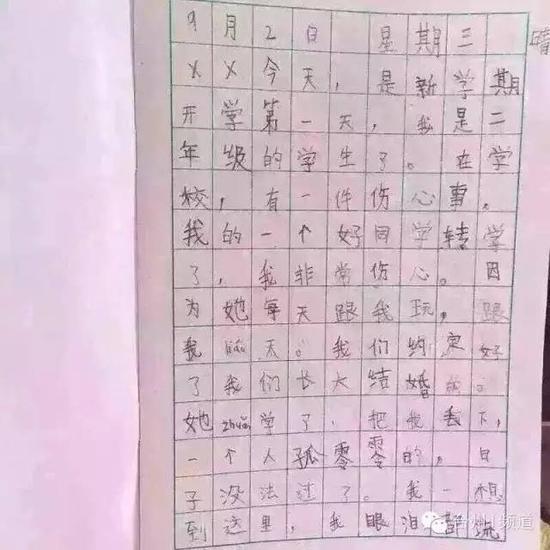 9月2日 星期三 晴
XX今天,是新学期
开学第一天,我是二
年级的学生了。在学
校,有一件伤心事。
我的一个好同学转学
了,我非常伤心。因
为她每天跟我玩,跟
我liáo天。我们约定好
了我们长大结婚的。
她zhuǎn学了,把我丢下,
一个人孤零零的,日
子没法过了。我一想
到这里,我眼泪都流
台州频道